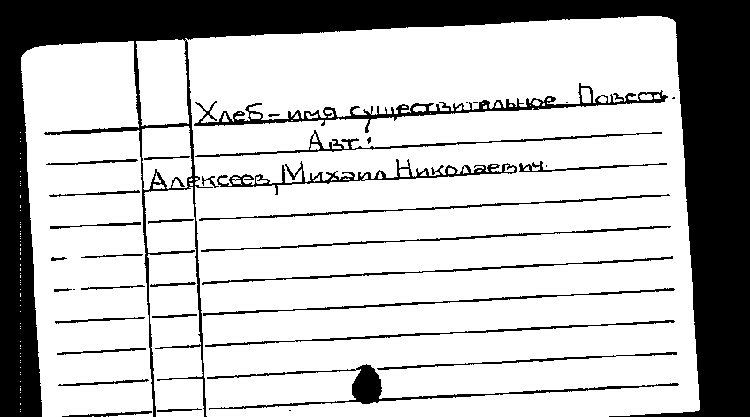 Хлеб-имя существительное. Повесть.
Авт.:
Алексеев, Михаил Николаевич.